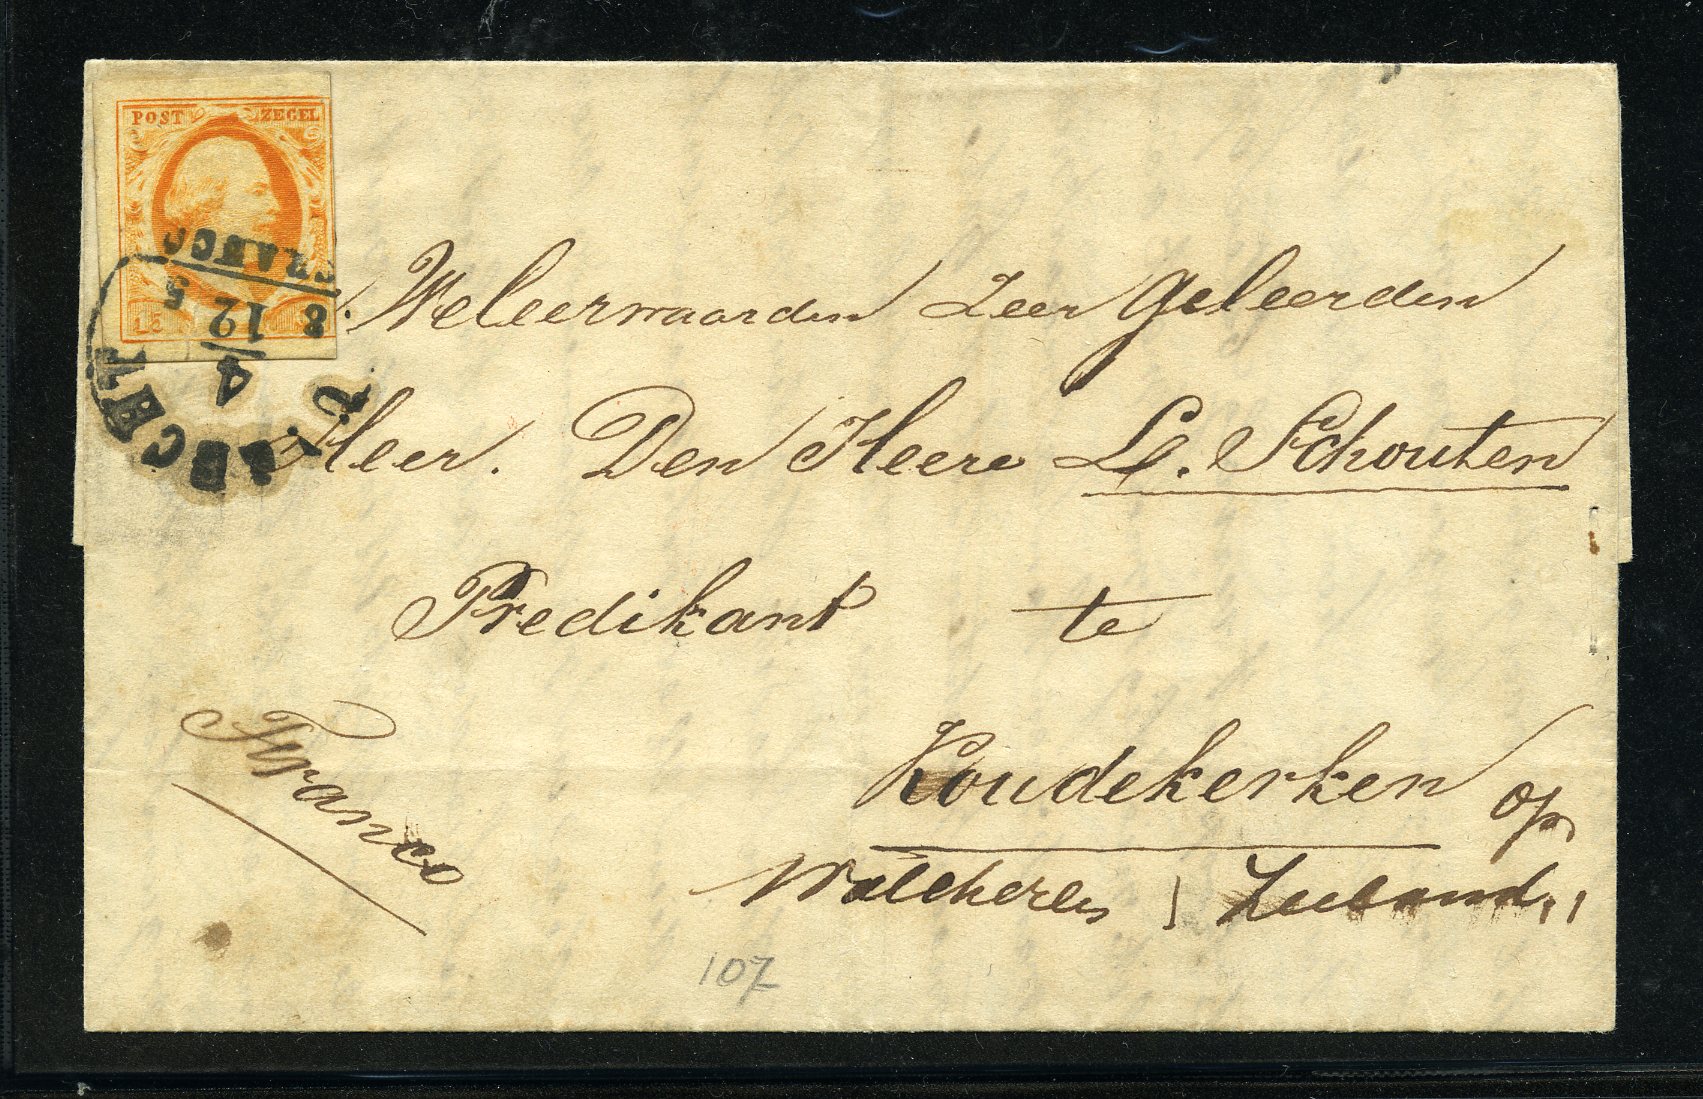 POST ZEGEL
15
FRANCO
8 12 5
4
UTRECHT
Weleerwaarden Zeer Geleerden
Heer. Den Heere L. Schouten
Predikant te
Franco
Koudekerken op
Walcheren Zeeland
107